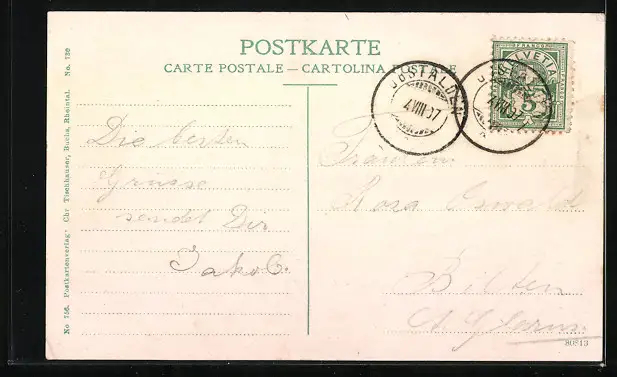 POSTKARTE
CARTE POSTALE — CARTOLINA POSTALE
No. 756. Postkartenverlag Chr Tischhauser, Buchs, Rheintal. No. 756
FRANCO
HELVETIA
5
OBSTALDEN
4.VIII.07
OBSTALDEN
4.VIII.07
Die besten
Grüsse
sendet Dir
Jakob.
Rosa
Bilten
Glarus
80813